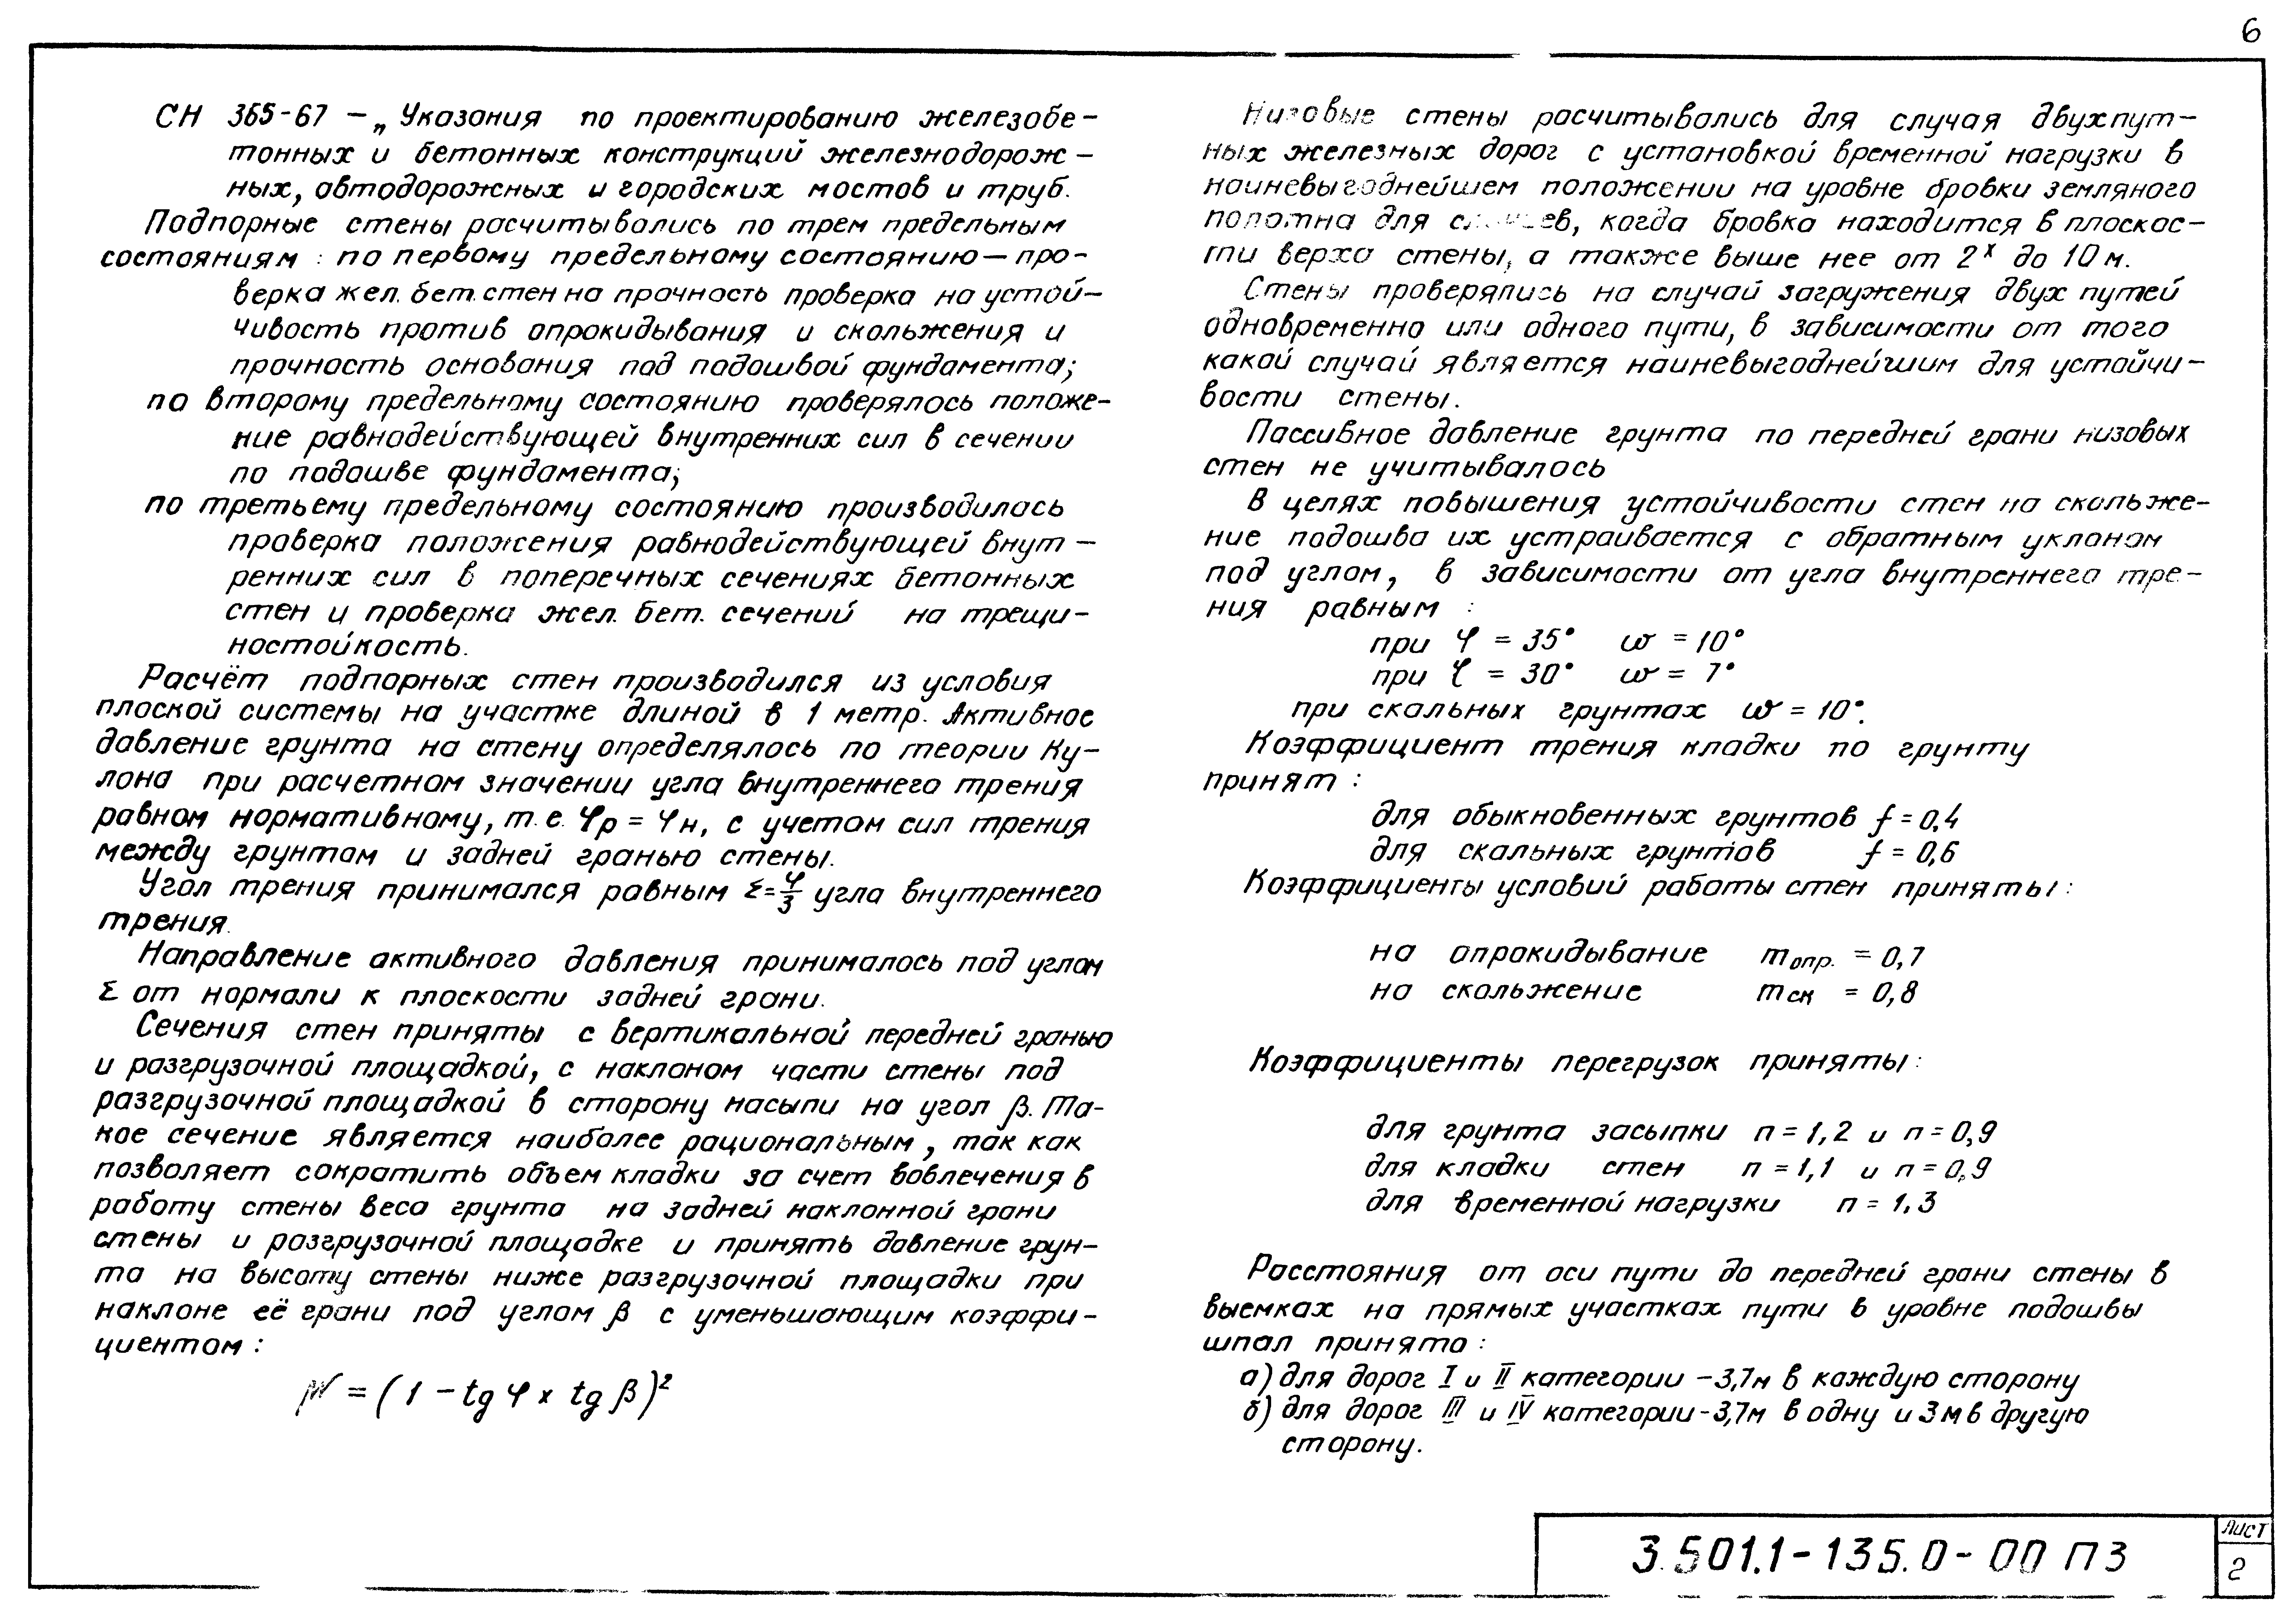 6
СН 365-67 – „Указания по проектированию железобе-
тонных и бетонных конструкций железнодорож-
ных, автодорожных и городских мостов и труб.
Подпорные стены расчитывались по трем предельным
состояниям : по первому предельному состоянию – про-
верка жел. бет. стен на прочность проверка на устой-
чивость против опрокидывания и скольжения и
прочность основания под подошвой фундамента;
по второму предельному состоянию проверялось положе-
ние равнодействующей внутренних сил в сечении
по подошве фундамента;
по третьему предельному состоянию производилась
проверка положения равнодействующей внут-
ренних сил в поперечных сечениях бетонных
стен и проверка жел. бет. сечений на трещи-
ностойкость.
Расчёт подпорных стен производился из условия
плоской системы на участке длиной в 1 метр. Активное
давление грунта на стену определялось по теории Ку-
лона при расчетном значении угла внутреннего трения
равном нормативному, т.е. φр = φн, с учетом сил трения
между грунтом и задней гранью стены.
Угол трения принимался равным Σ=φ/3 угла внутреннего
трения.
Направление активного давления принималось под углом
Σ от нормали к плоскости задней грани.
Сечения стен приняты с вертикальной передней гранью
и разгрузочной площадкой, с наклоном части стены под
разгрузочной площадкой в сторону насыпи на угол β. Та-
кое сечение является наиболее рациональным, так как
позволяет сократить объем кладки за счет вовлечения в
работу стены веса грунта на задней наклонной грани
стены и разгрузочной площадке и принять давление грун-
та на высоту стены ниже разгрузочной площадки при
наклоне её грани под углом β с уменьшающим коэффи-
циентом :
= (1 – tg φ x tg β)²
Низовые стены расчитывались для случая двухпут-
ных железных дорог с установкой временной нагрузки в
наиневыгоднейшем положении на уровне бровки земляного
полотна для случаев, когда бровка находится в плоскос-
ти верха стены, а также выше нее от 2ˣ до 10 м.
Стены проверялись на случай загружения двух путей
одновременно или одного пути, в зависимости от того
какой случай является наиневыгоднейшим для устойчи-
вости стены.
Пассивное давление грунта по передней грани низовых
стен не учитывалось
В целях повышения устойчивости стен на скольже-
ние подошва их устраивается с обратным уклоном
под углом, в зависимости от угла внутреннего тре-
ния равным :
при φ = 35° ω = 10°
при φ = 30° ω = 7°
при скальных грунтах ω = 10°.
Коэффициент трения кладки по грунту
принят :
для обыкновенных грунтов f = 0,4
для скальных грунтов f = 0,6
Коэффициенты условий работы стен приняты :
на опрокидывание mопр. = 0,7
на скольжение mск = 0,8
Коэффициенты перегрузок приняты :
для грунта засыпки n = 1,2 и n = 0,9
для кладки стен n = 1,1 и n = 0,9
для временной нагрузки n = 1,3
Расстояния от оси пути до передней грани стены в
выемках на прямых участках пути в уровне подошвы
шпал принято :
а) для дорог I и II категории – 3,7м в каждую сторону
б) для дорог III и IV категории – 3,7м в одну и 3м в другую
сторону.
3.501.1-135.0-00 ПЗ
Лист
2